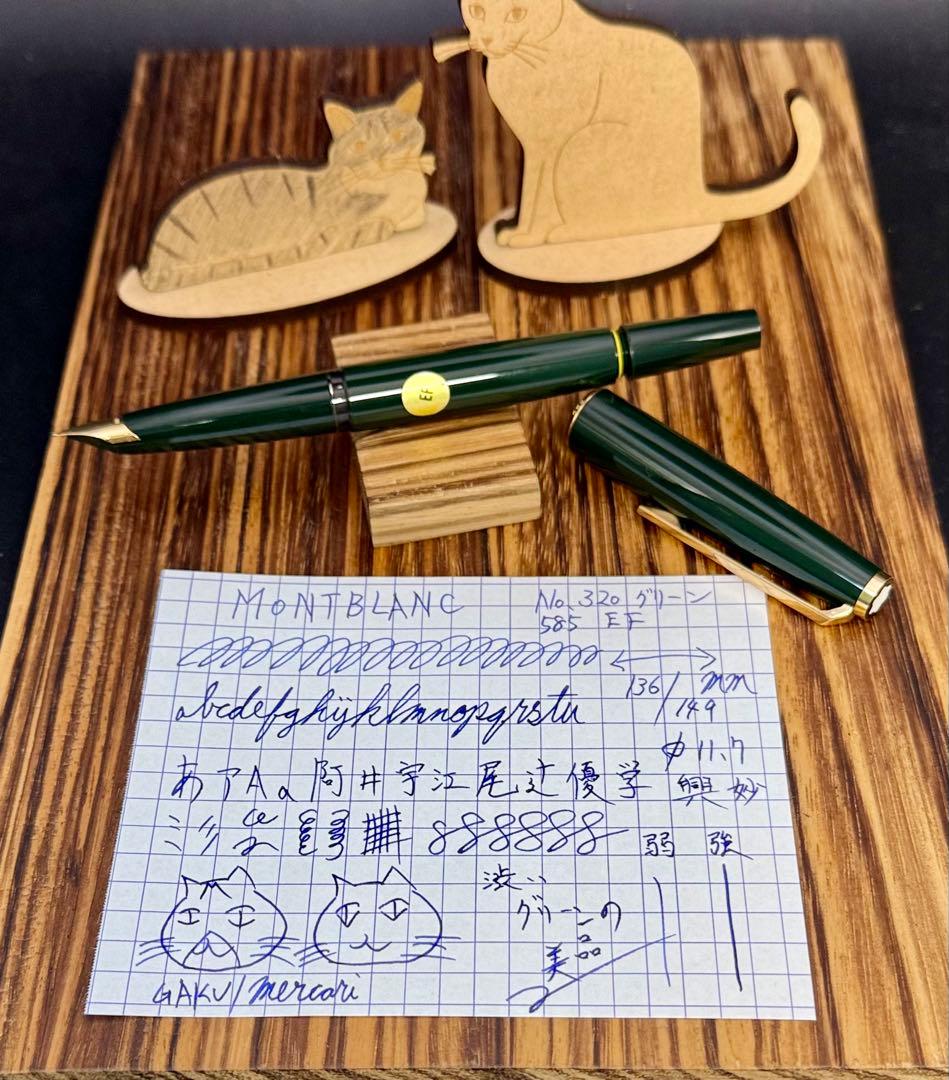 EF
MONTBLANC
No.320 グリーン
585 EF
136/149 mm
abcdefghijklmnopqrstu
φ11.7
あアAa阿井宇江尾辻優学興妙
弱 強
渋い
グリーンの
美品
GAKU/mercari